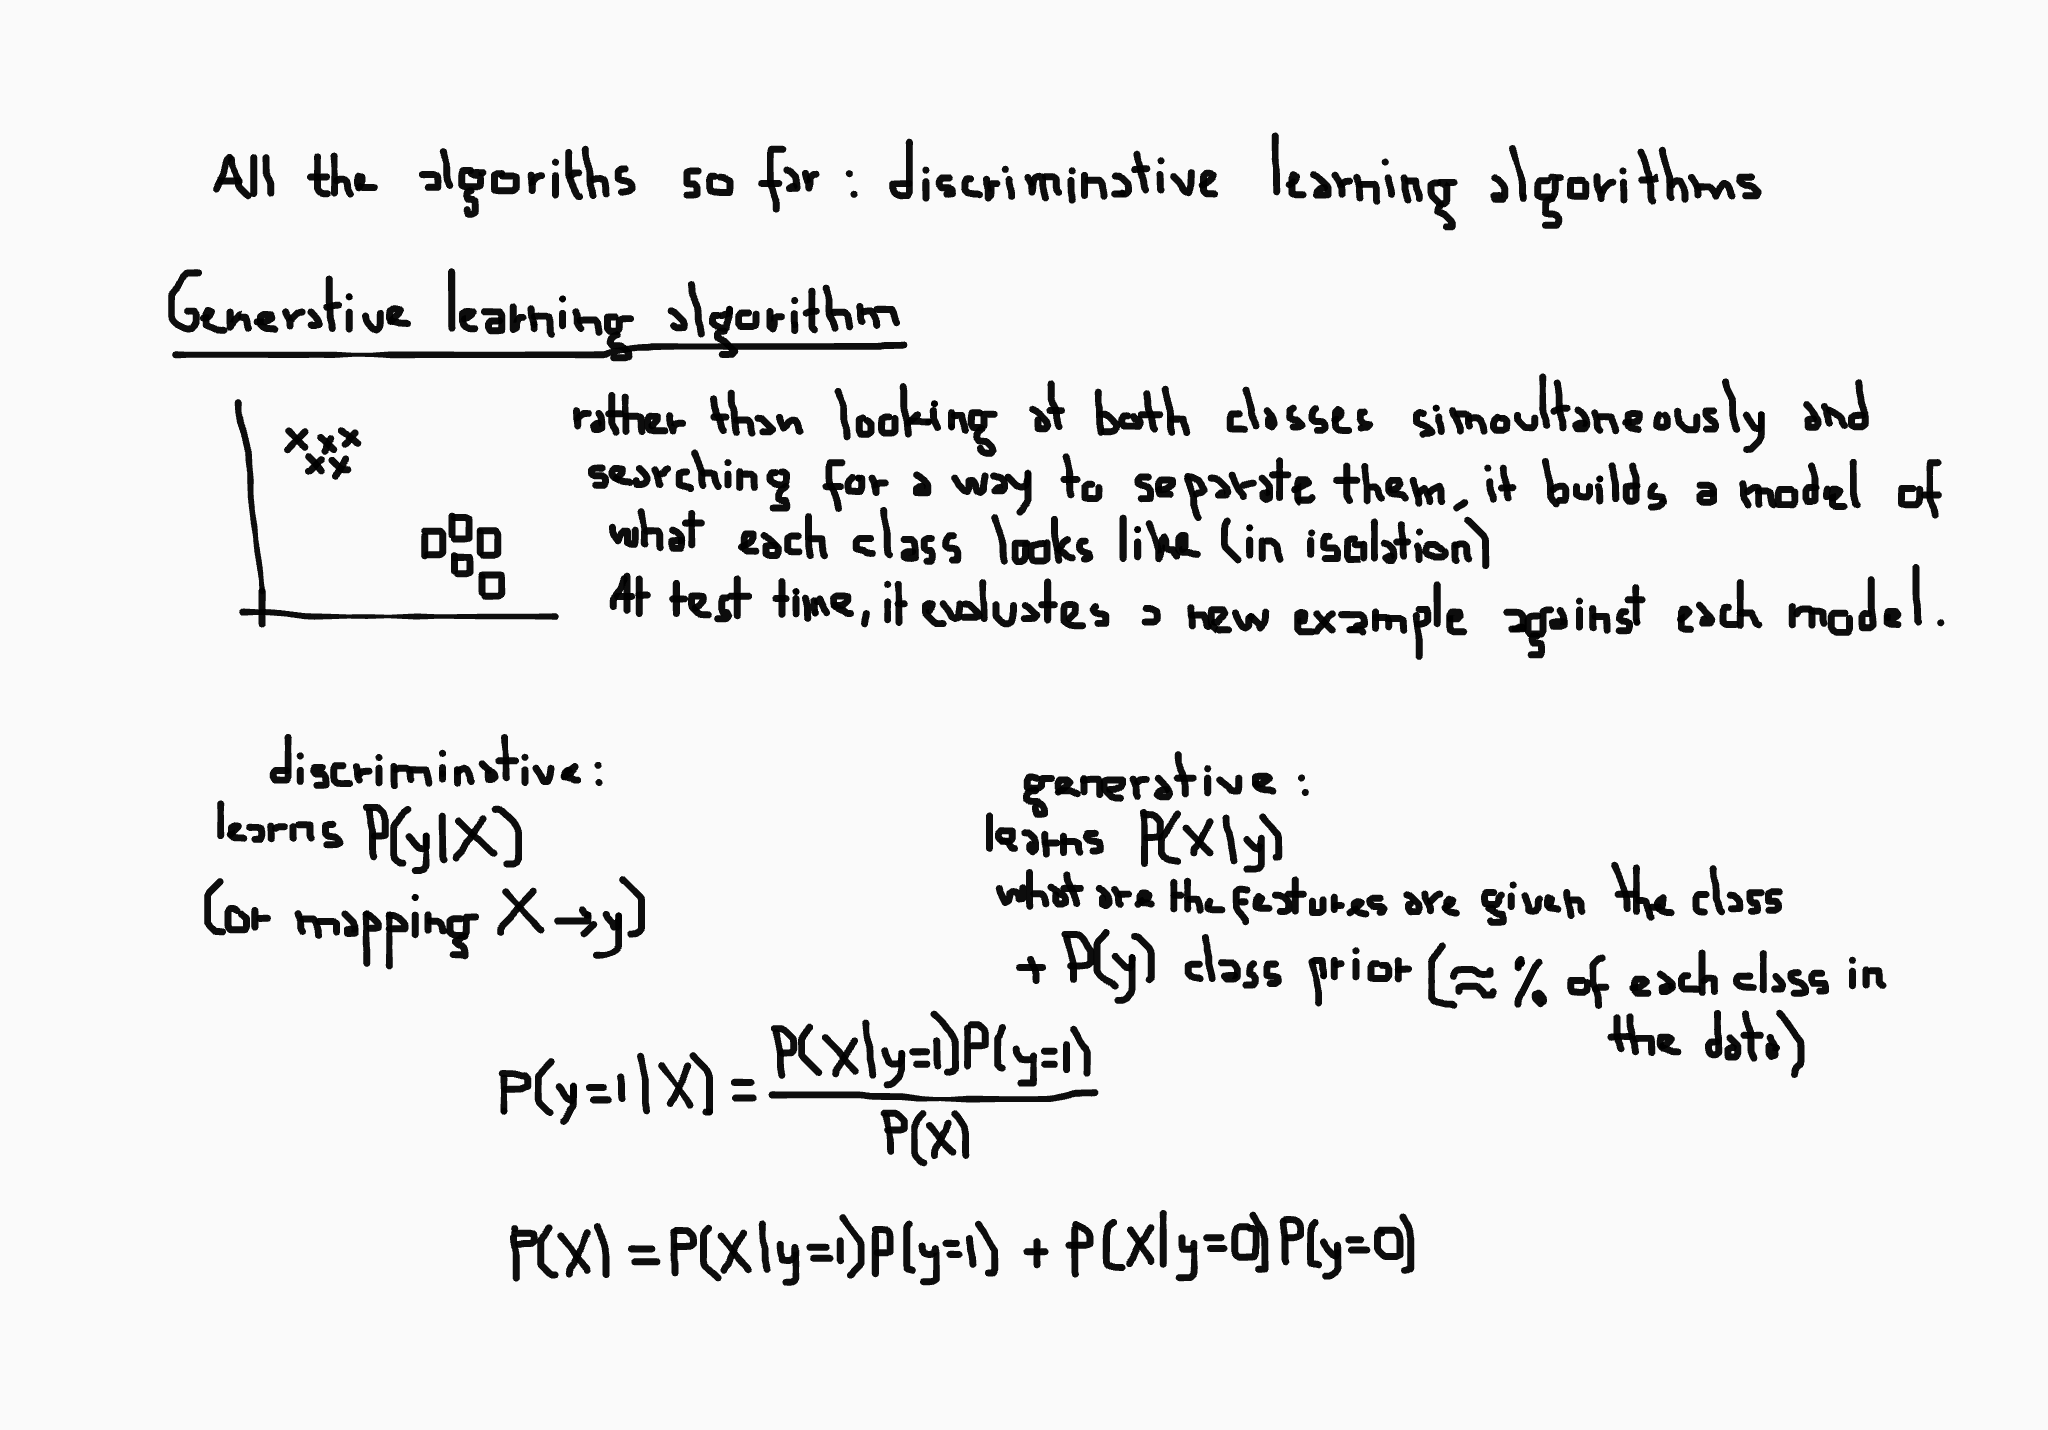 All the algoriths so far : discriminative learning algorithms
Generative learning algorithm
rather than looking at both classes simoultaneously and
searching for a way to separate them, it builds a model of
what each class looks like (in isolation)
At test time, it evaluates a new example against each model.
discriminative:
learns P(y|X)
(or mapping X→y)
generative :
learns P(X|y)
what are the features are given the class
+ P(y) class prior (≈ % of each class in
the data)
P(y=1|X) = P(X|y=1)P(y=1) / P(X)
P(X) = P(X|y=1)P(y=1) + P(X|y=0)P(y=0)